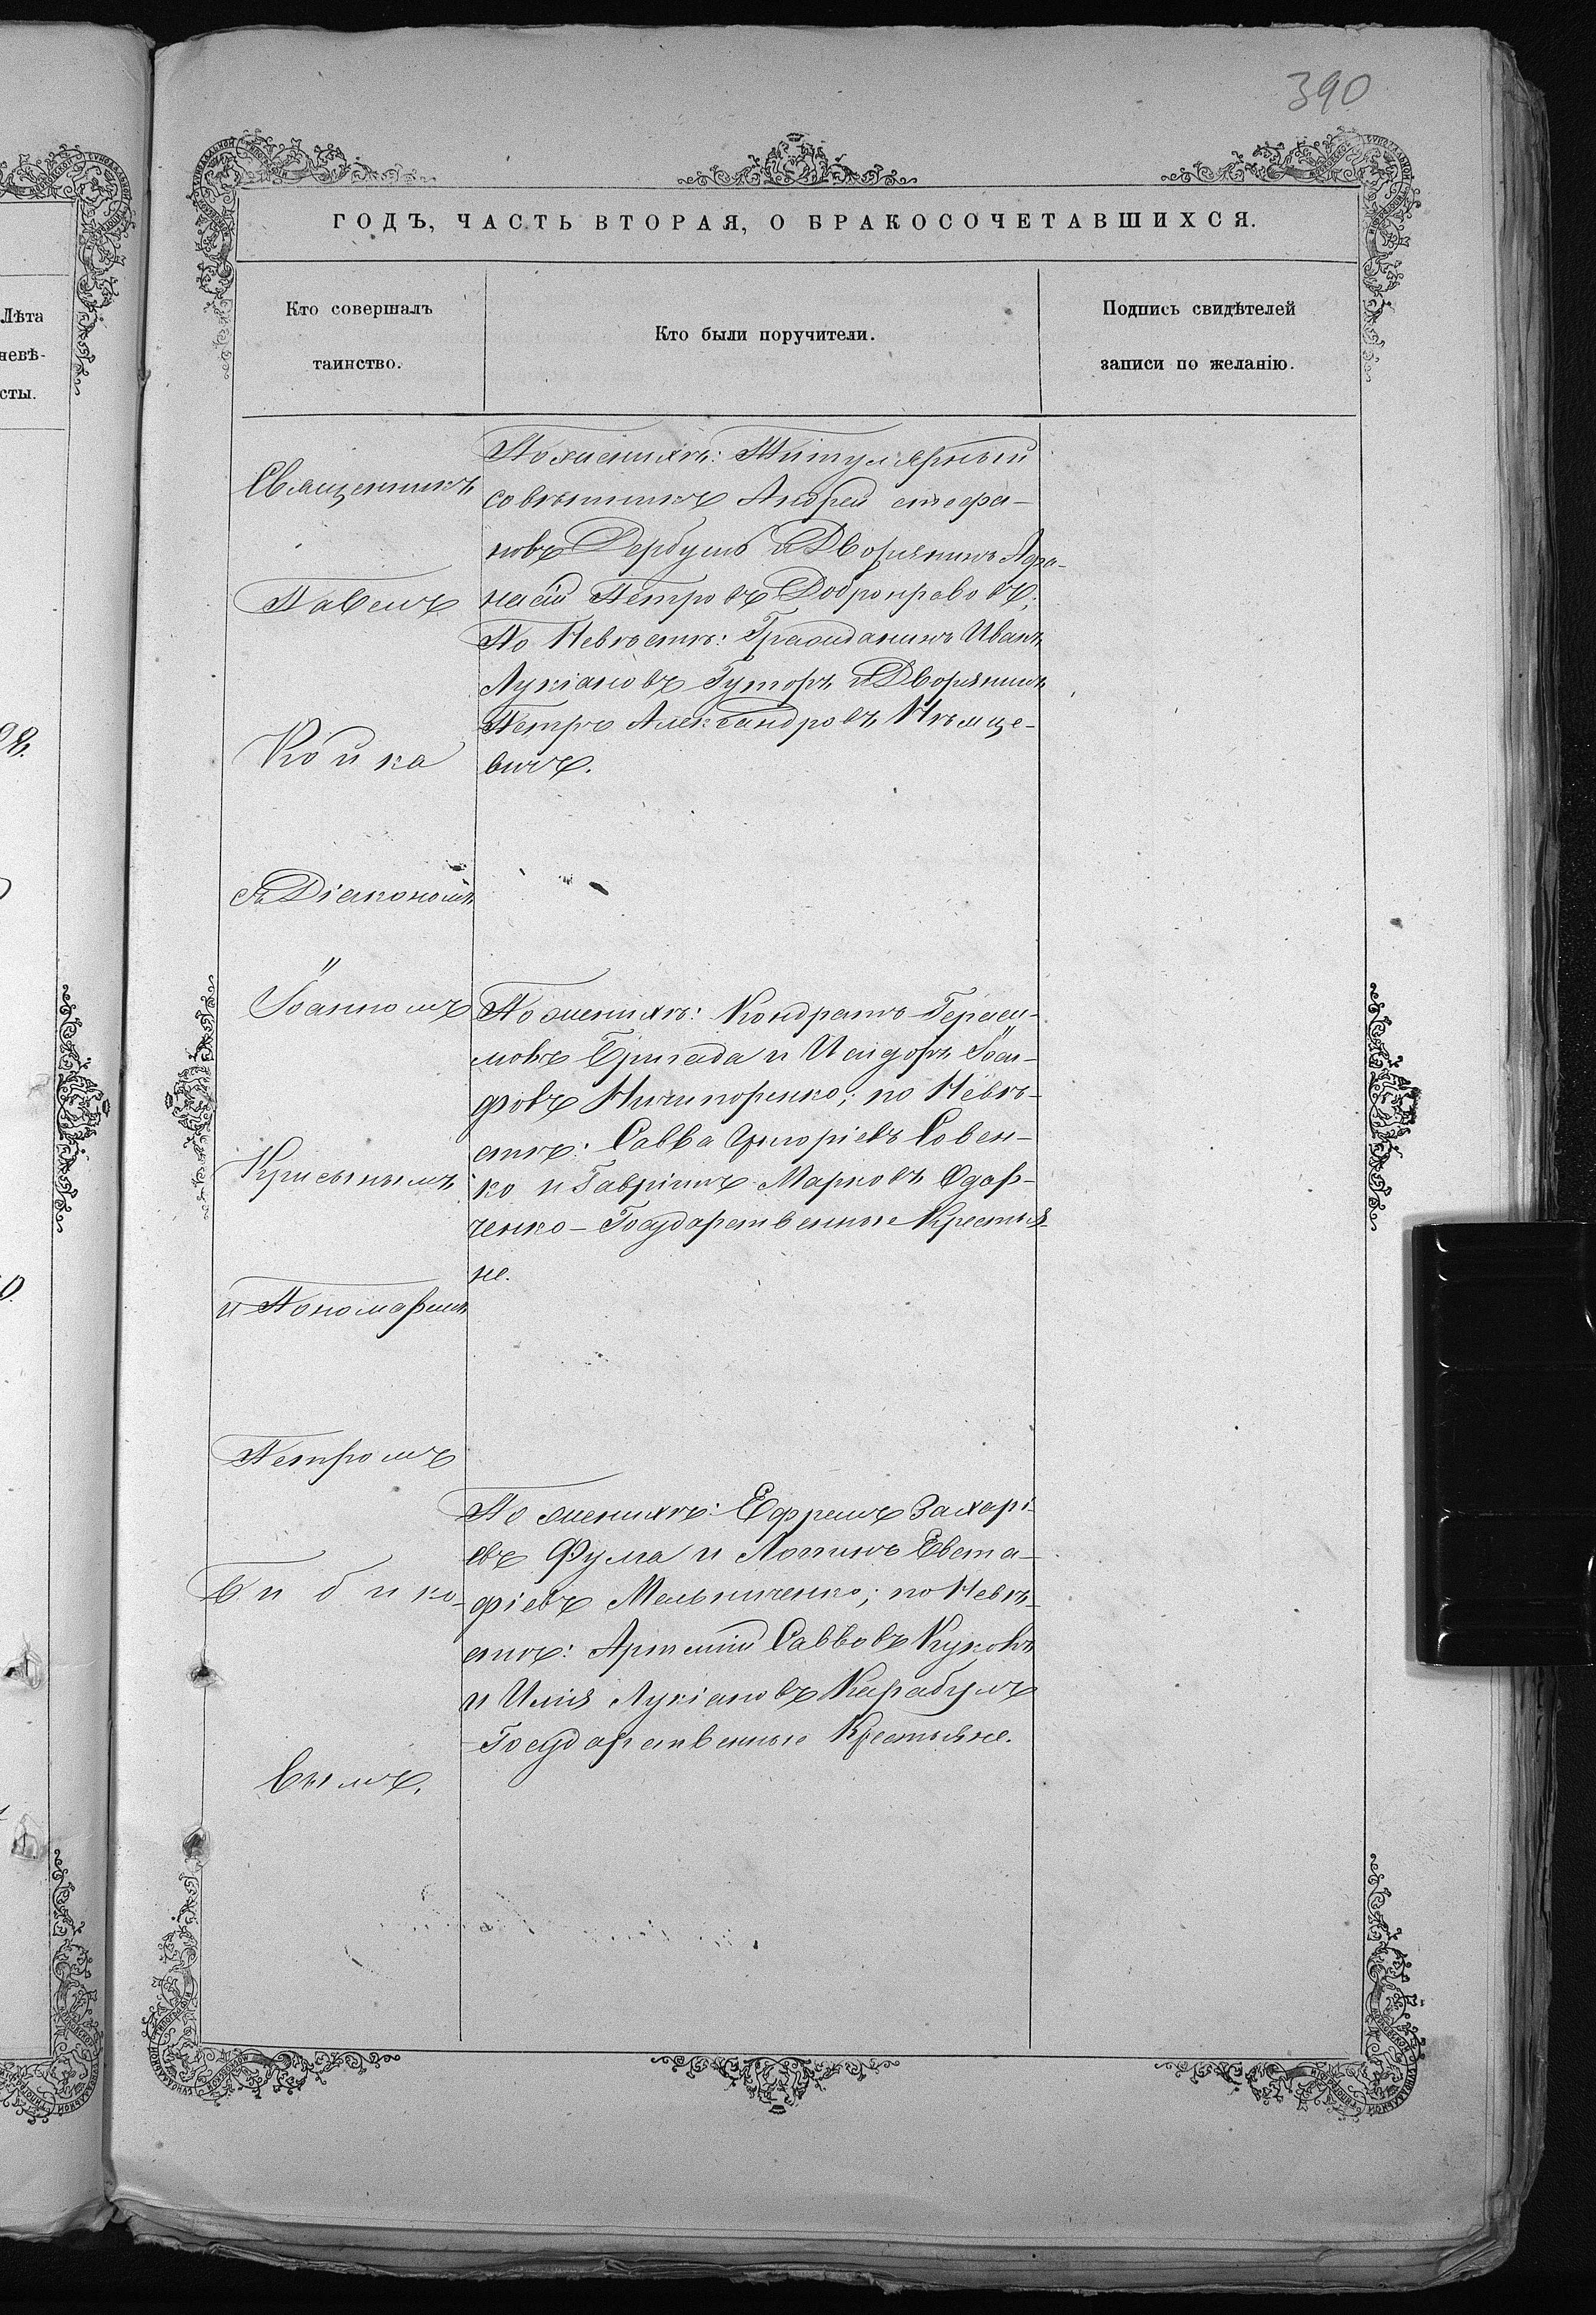 390
ГОДЪ, ЧАСТЬ ВТОРАЯ, О БРАКОСОЧЕТАВШИХСЯ.
Лѣта
невѣ-
сты.
Кто совершалъ
таинство.
Кто были поручители.
Подпись свидѣтелей
записи по желанію.
Священникъ
Павелъ
Койка
съ Діакономъ
Іоанномъ
и Пономаремъ
Петромъ
Бибико-
вымъ.
По женихѣ: Титулярный
совѣтникъ Андрей Стефа-
новъ и Дворянинъ Афа-
насій Петровъ Добронравовъ;
По Невѣстѣ: Гражданинъ Иванъ
Лукіановъ Гуторъ и Дворянинъ
Петръ Александровъ Нѣмце-
вичъ.
По женихѣ: Кондратъ Гераси-
мовъ Бригада и Исидоръ Іоси-
фовъ Ничипоренко; по Невѣ-
стѣ: Савва Григоріевъ Совен-
ко и Гавріилъ Марковъ Одар-
ченко - Государственные Крестья-
не.
По женихѣ: Ефремъ Захарі-
евъ Фума и Логинъ Евста-
фіевъ Мельниченко; по Невѣ-
стѣ: Артемій Саввовъ
и Илія Лукіановъ Карабутъ
Государственные Крестьяне.